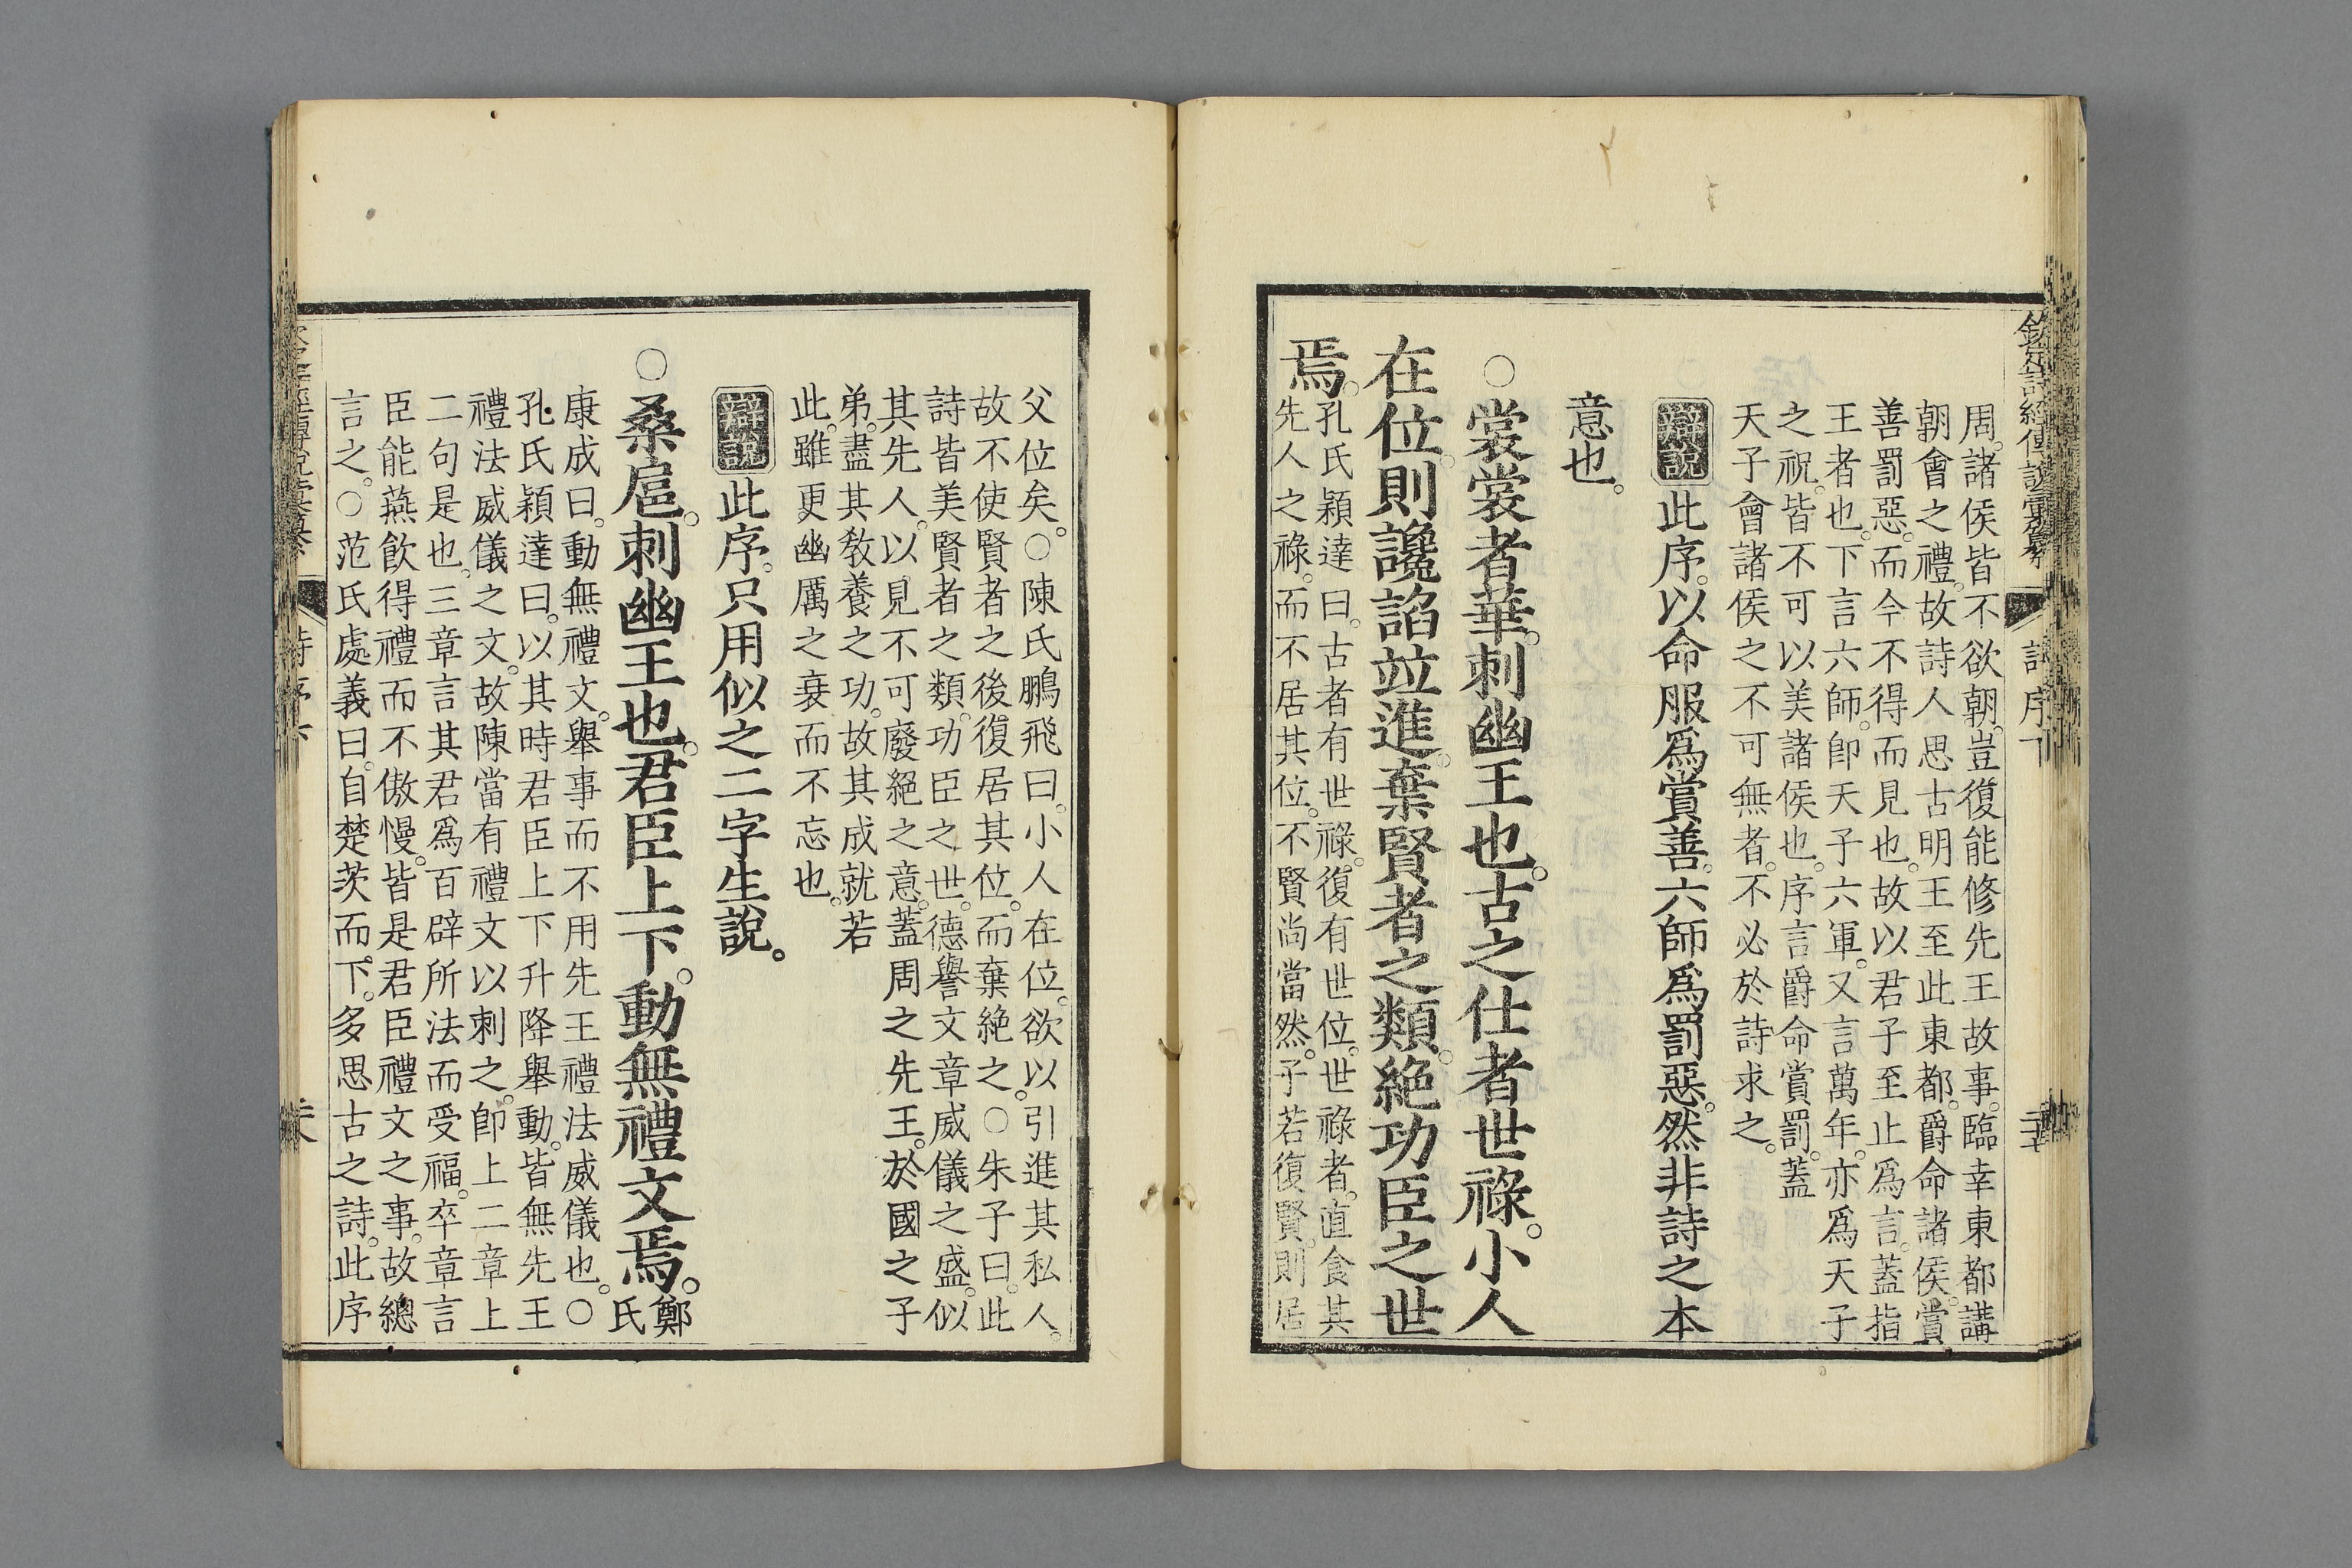 周。諸侯皆不欲朝。豈復能修先王故事。臨幸東都講
朝會之禮。故詩人思古明王至此東都。爵命諸侯。賞
善罰惡。而今不得而見也。故以君子至止爲言。蓋指
王者也。下言六師。卽天子六軍。又言萬年。亦爲天子
之祝。皆不可以美諸侯也。序言爵命賞罰。蓋
天子會諸侯之不可無者。不必於詩求之。
辯說此序。以命服爲賞善。六師爲罰惡。然非詩之本
意也。
○裳裳者華。刺幽王也。古之仕者世祿。小人
在位。則讒諂竝進。棄賢者之類。絶功臣之世
焉。
孔氏穎達曰。古者有世祿。復有世位。世祿者。直食其
先人之祿。而不居其位。不賢尚當然。子若復賢。則居
父位矣。○陳氏鵬飛曰。小人在位。欲以引進其私人。
故不使賢者之後復居其位。而棄絶之。○朱子曰。此
詩皆美賢者之類。功臣之世。德譽文章威儀之盛。似
其先人。以見不可廢絶之意。蓋周之先王。於國之子
弟。盡其敎養之功。故其成就若
此。雖更幽厲之衰而不忘也。
辯說此序。只用似之二字生說。
○桑扈。刺幽王也。君臣上下。動無禮文焉。
鄭氏
康成曰。動無禮文。舉事而不用先王禮法威儀也。○
孔氏穎達曰。以其時君臣上下升降舉動。皆無先王
禮法威儀之文。故陳當有禮文以刺之。卽上二章上
二句是也。三章言其君爲百辟所法而受福。卒章言
臣能燕飮得禮而不傲慢。皆是君臣禮文之事。故總
言之。○范氏處義曰。自楚茨而下。多思古之詩。此序